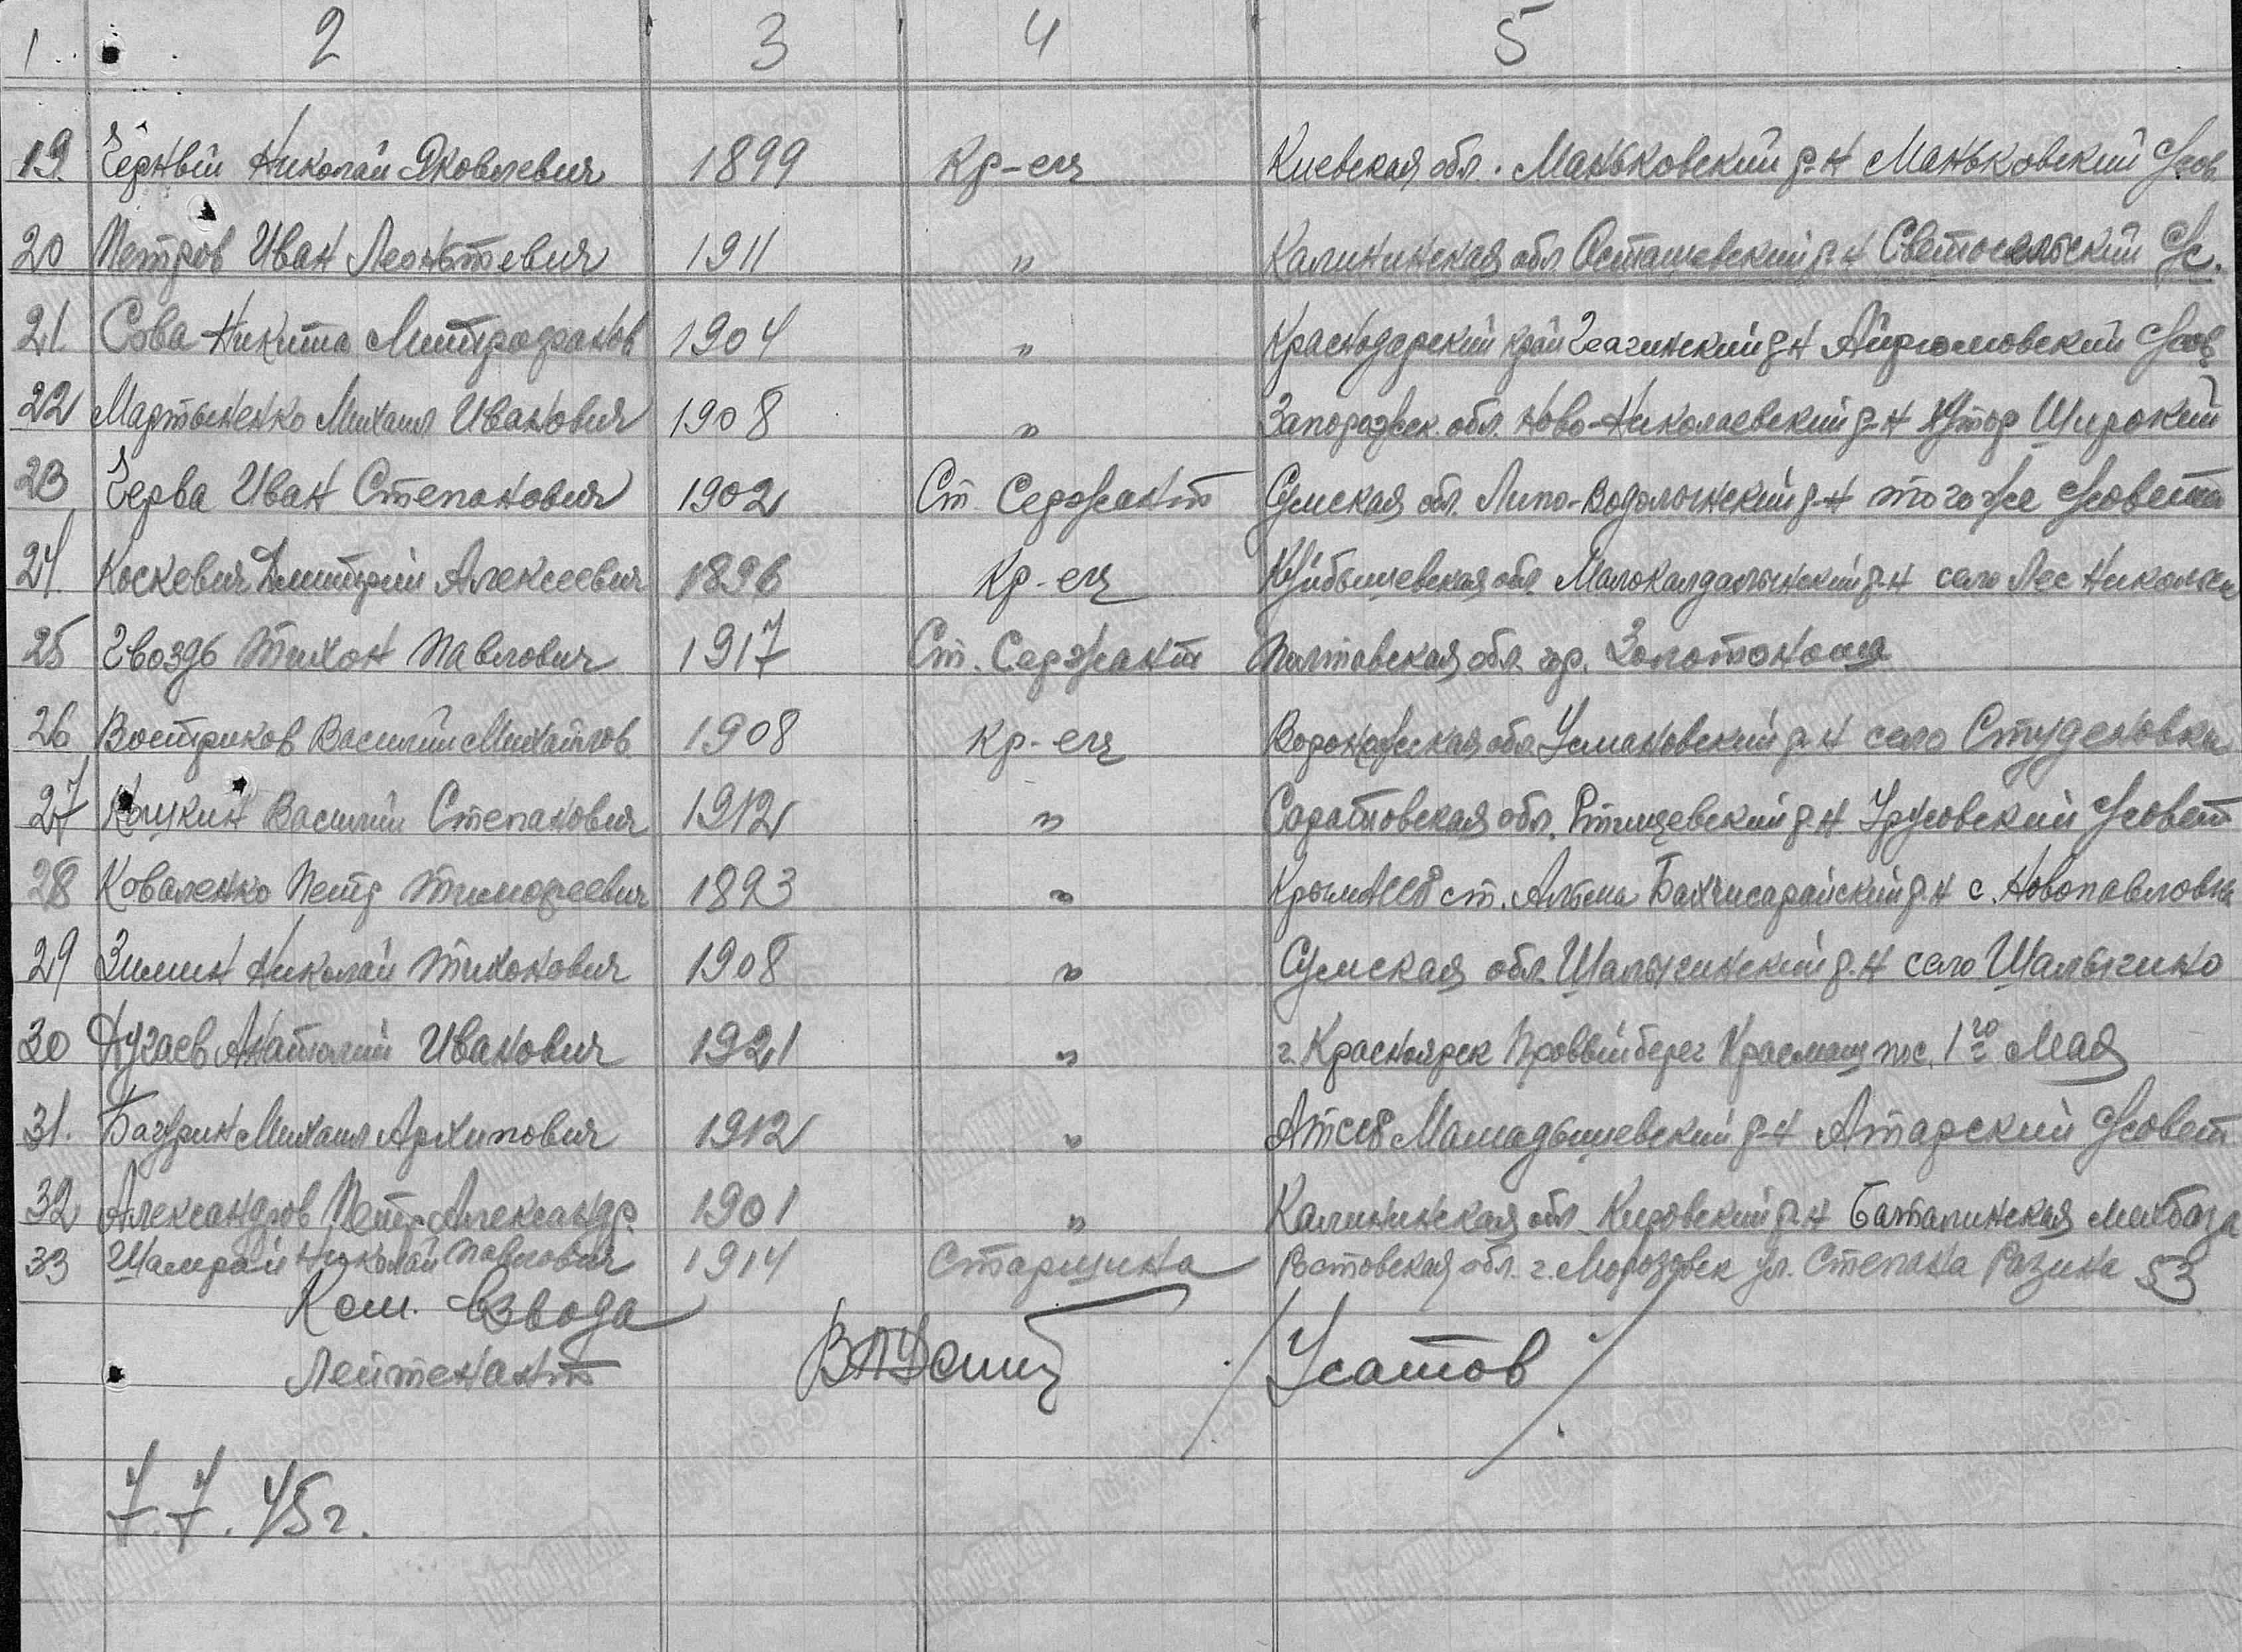 1 2 3 4 5
19. Чёрный Николай Яковлевич 1899 Кр-ец Киевская обл. Маньковский р-н Маньковский с/сов.
20 Петров Иван Леонтьевич 1911 " Калининская обл. Осташевский р-н Светосельский с/с.
21. Сова Никита Митрофанов 1904 " Краснодарский край Геагинский р-н Айрюмовский с/сов
22 Мартыненко Михаил Иванович 1908 " Запорожск. обл. Ново-Николаевский р-н хутор Широкий
23 Черва Иван Степанович 1902 Ст. Сержант Сумская обл. Липо-Водолынский р-н того же с/совета
24. Коскевич Дмитрий Алексеевич 1896 Кр-ец Куйбышевская обл. р-н село Лес
25 Гвоздь Тихон Павлович 1917 Ст. Сержант Полтавская обл. гор. Золотоноша
26 Востриков Василий Михайлов. 1908 Кр-ец Воронежская обл. Усмановский р-н село Студеновка
27 Василий Степанович 1912 " Саратовская обл. Ртищевский р-н Урусовский с/совет
28 Коваленко Петр Тимофеевич 1893 " ст. Альма Бахчисарайский р-н с. Новопавловка
29 Зимин Николай Тихонович 1908 " Сумская обл. Шалыгинский р-н село Шалыгино
30 Анатолий Иванович 1921 " г. Красноярск Правый берег Красмаш пос. 1го Мая
31. Багрин Михаил Архипович 1912 " р-н Атарский с/совет
32 Александров Петр Александр. 1901 " Калининская обл. Кировский р-н Баталинская
33 Шамрай Николай Павлович 1914 Старшина Ростовская обл. г. Морозовск ул. Степана Разина 53
Ком. взвода
Лейтенант /Усатов/
7.7.45г.